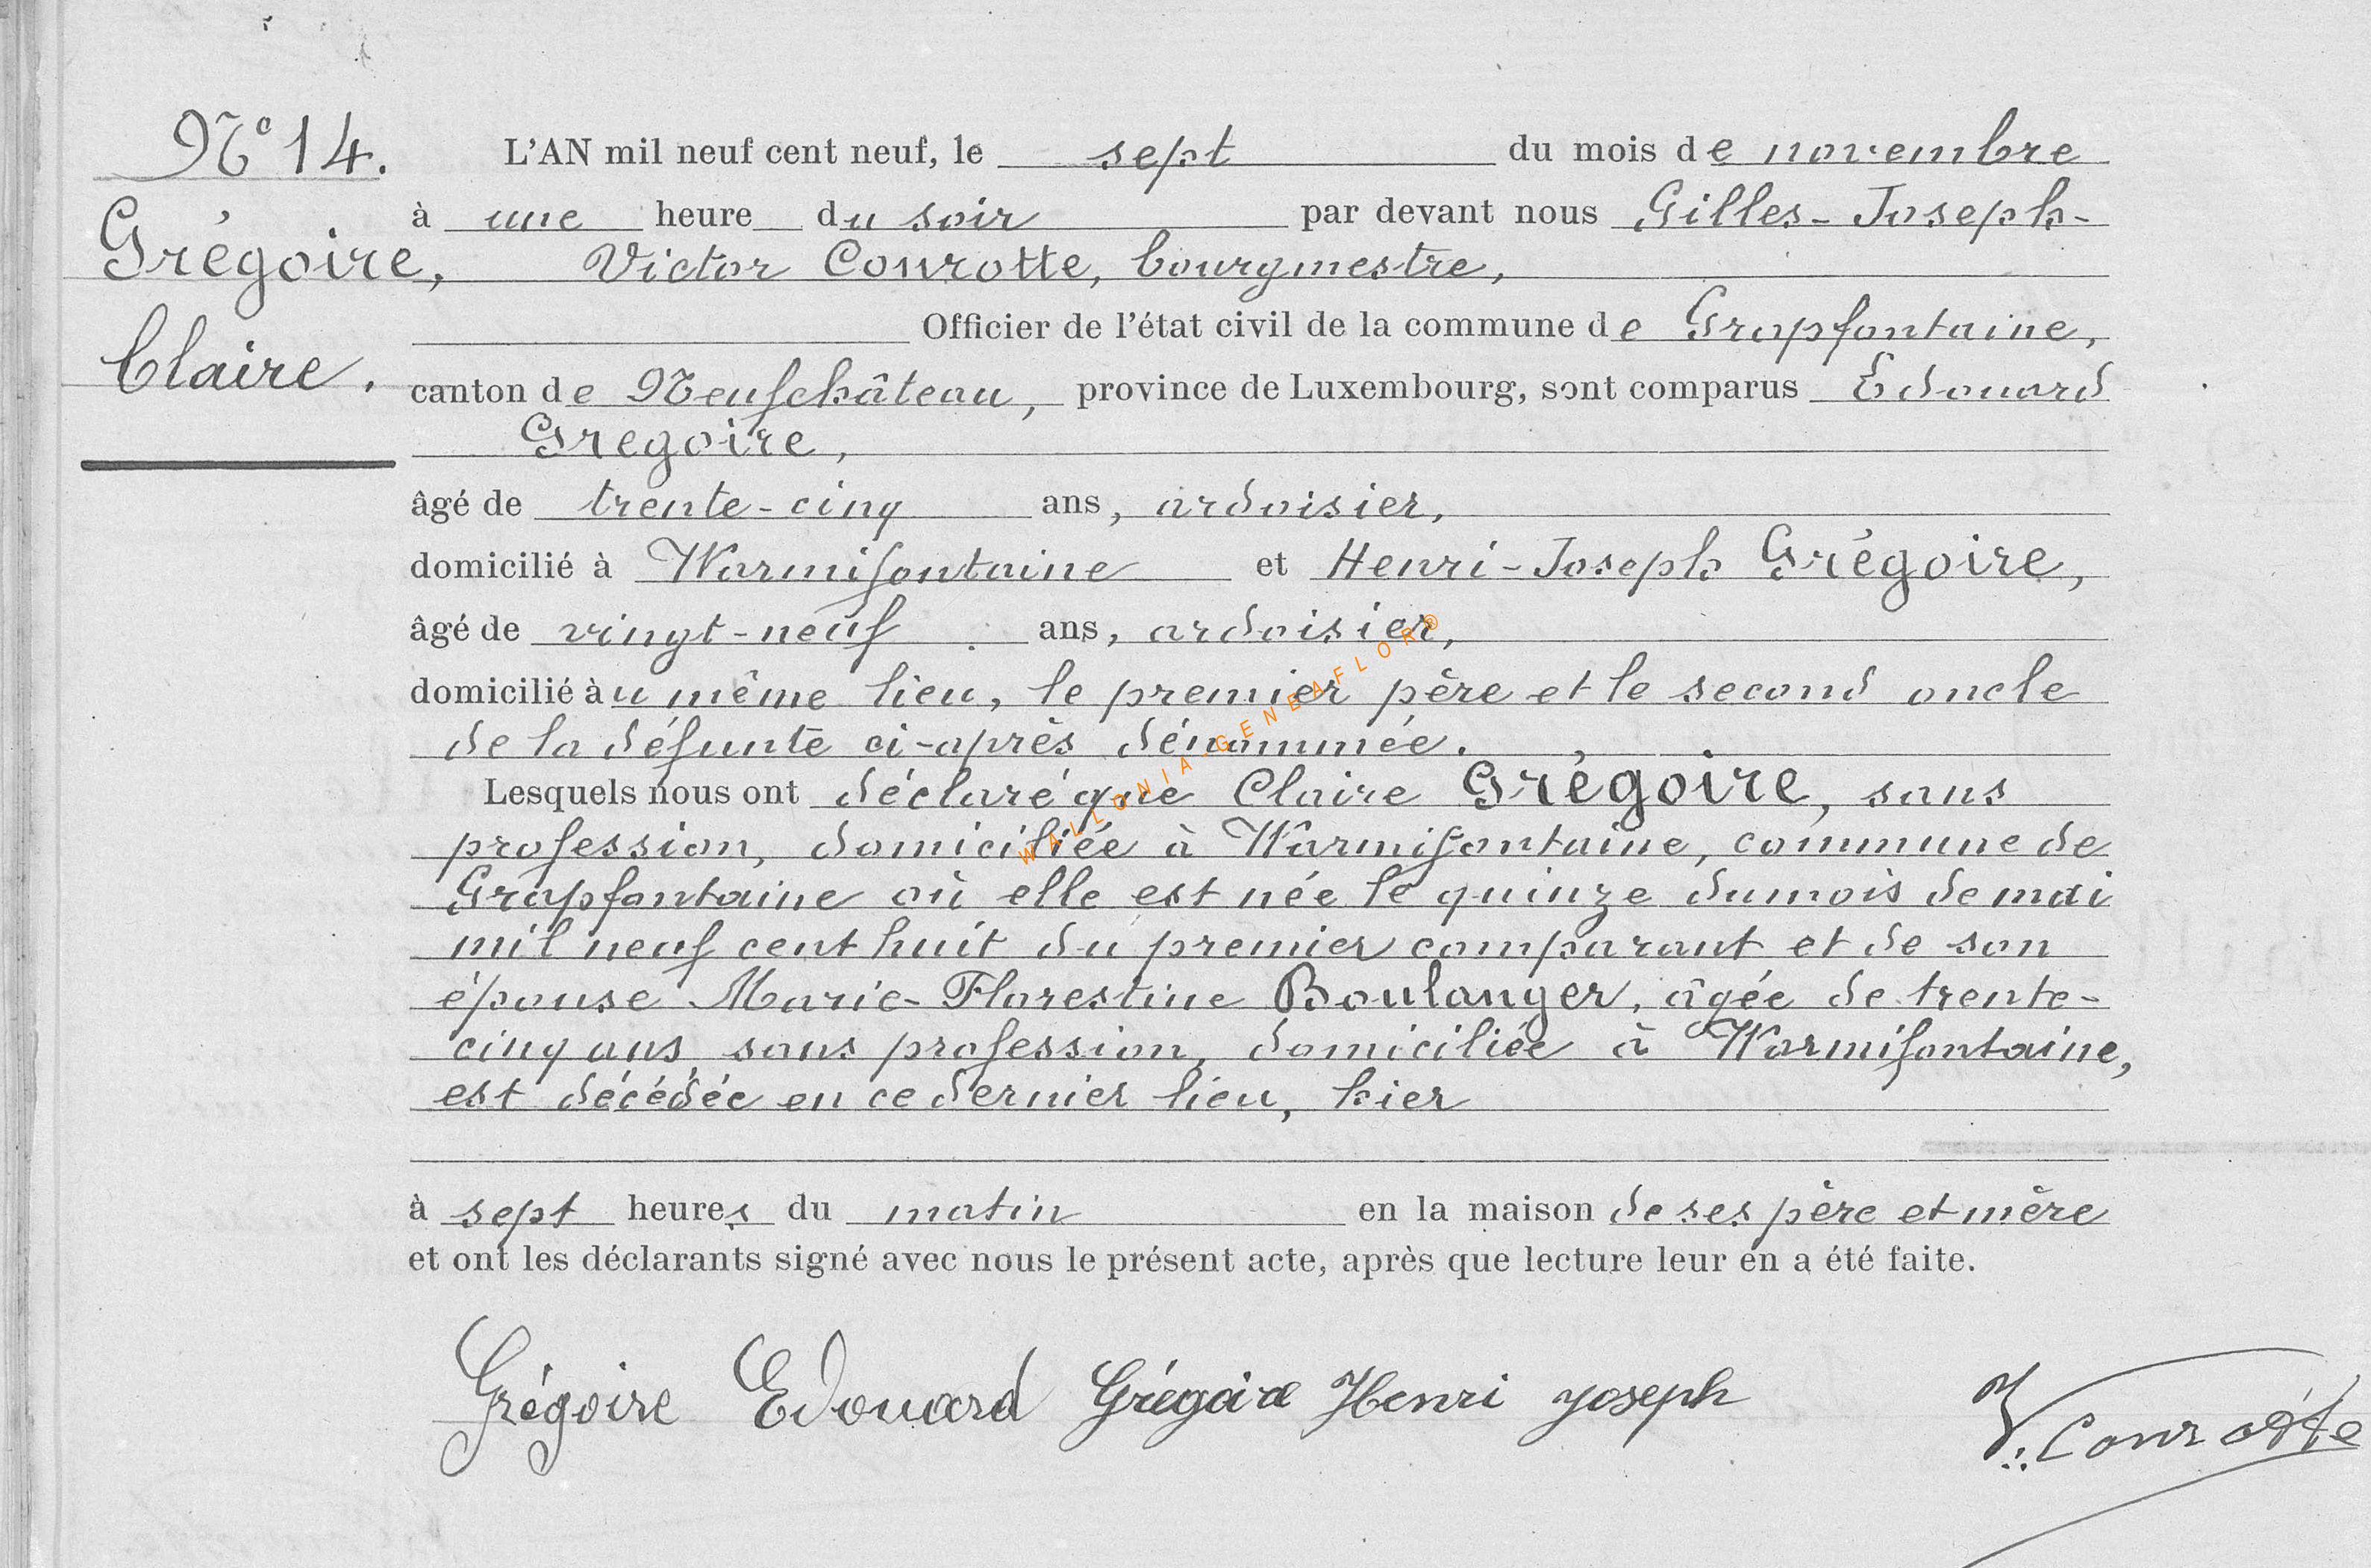 N° 14.
Grégoire,
Claire.
L'AN mil neuf cent neuf, le sept du mois de novembre
à une heure du soir par devant nous Gilles-Joseph-
Victor Conrotte, bourgmestre,
Officier de l'état civil de la commune de Grapfontaine,
canton de Neufchâteau, province de Luxembourg, sont comparus Edouard
Gregoire,
âgé de trente-cinq ans, ardoisier,
domicilié à Warmifontaine et Henri-Joseph Grégoire,
âgé de vingt-neuf ans, ardoisier,
domicilié au même lieu, le premier père et le second oncle
de la défunte ci-après dénommée.
Lesquels nous ont déclaré que Claire Grégoire, sans
profession, domiciliée à Warmifontaine, commune de
Grapfontaine où elle est née le quinze du mois de mai
mil neuf cent huit du premier comparant et de son
épouse Marie-Florestine Boulanger, âgée de trente-
cinq ans, sans profession, domiciliée à Warmifontaine,
est décédée en ce dernier lieu, hier
à sept heures du matin en la maison de ses père et mère
et ont les déclarants signé avec nous le présent acte, après que lecture leur en a été faite.
Grégoire Edouard Grégoire Henri Joseph V. Conrotte
WALLONIA-GENEAFLOR®